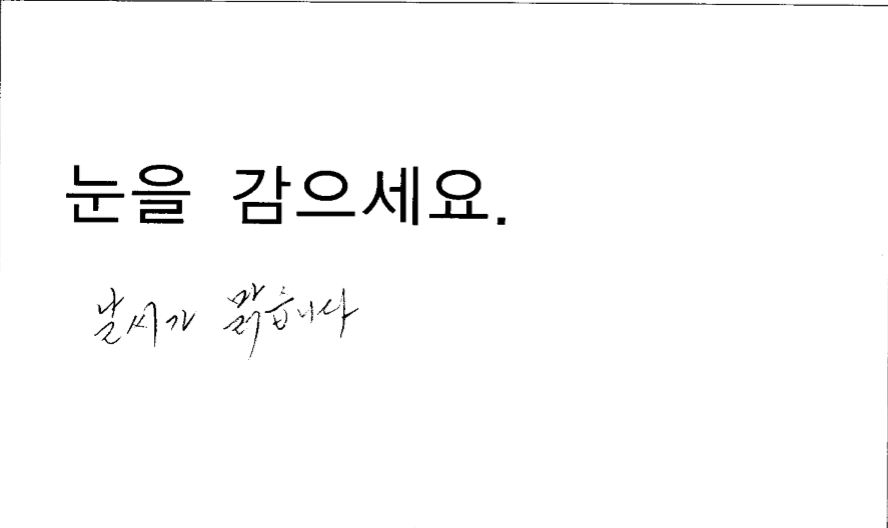 눈을 감으세요.
날씨가 맑습니다